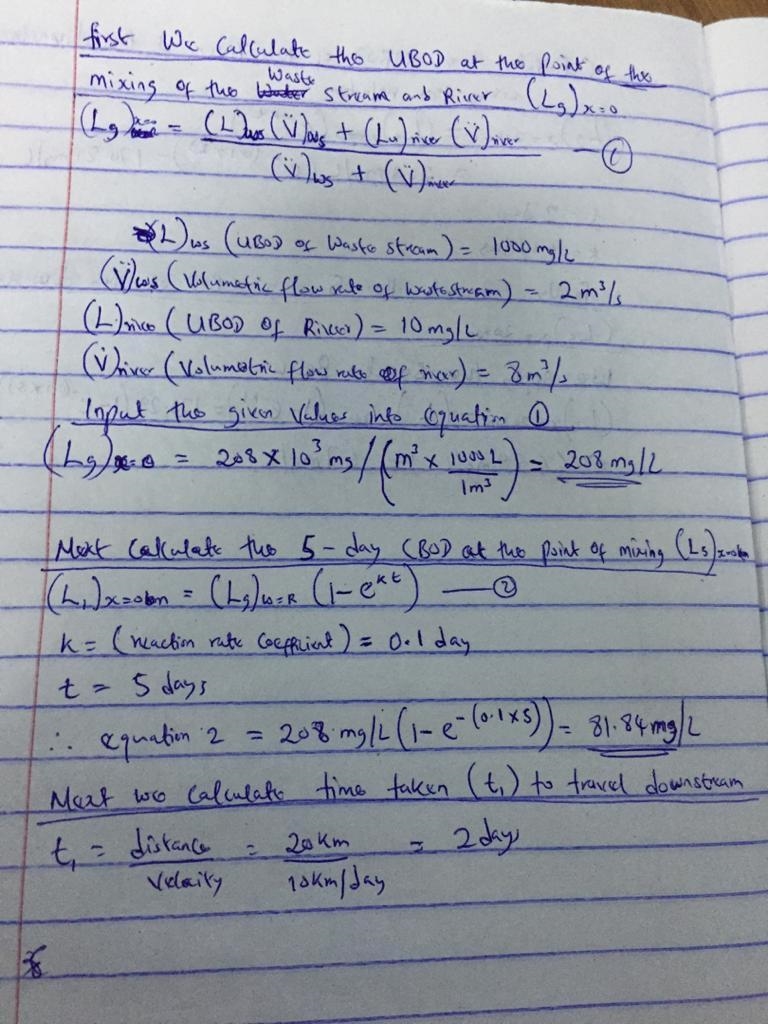 first We Calculate the UBOD at the Point of the
mixing of the Waste stream and River (Lg)x=0
(Lg) = (L)ws (V̈)ws + (Lu)river (V̈)river / (V̈)ws + (V̈)river —①
(L)ws (UBOD of Waste stream) = 1000 mg/L
(V̈)ws (Volumetric flow rate of Wastestream) = 2 m³/s
(L)river (UBOD of River) = 10 mg/L
(V̇)river (Volumetric flow rate of river) = 8 m³/s
Input the given Values into equation ①
(Lg)x=0 = 208 x 10³ mg / (m³ x 1000 L / 1m³) = 208 mg/L
Next Calculate the 5-day CBOD at the point of mixing (L5)x=0km
(L,)x=0km = (Lg)w=R (1-e^kt) —②
k = (reaction rate Coefficient) = 0.1 day
t = 5 days
∴ equation 2 = 208 mg/L (1-e^-(0.1x5)) = 81.84 mg/L
Next we Calculate time taken (t,) to travel downstream
t, = distance / Velocity = 20km / 10km/day = 2 days